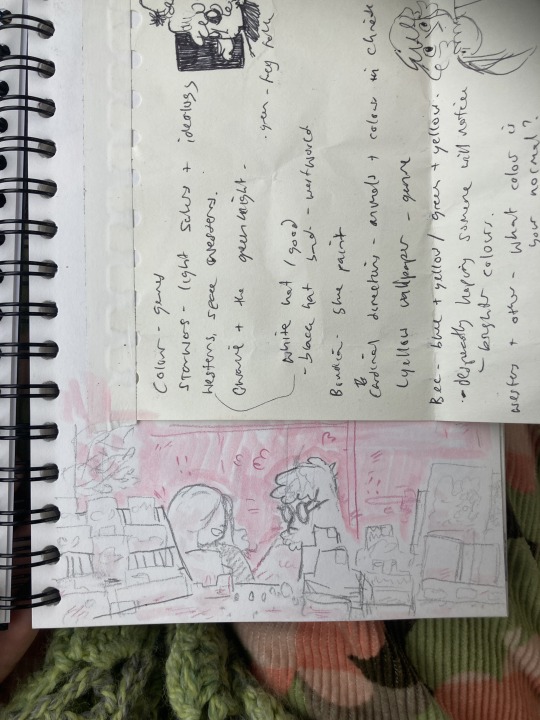 Colour - genre
Starwars - light sabers + ideology
Westerns, space westerns.
Gwaine + the green knight -
- green - frog folk
White hat / good
- black hat bad - westworld
Boudica - blue paint
Cardinal directions - animals + colour in
Yellow wallpaper - genre
Bee - blue + yellow / green + yellow.
• desperatly hoping someone will notice
- brighter colours.
+ other - what color is
your normal?